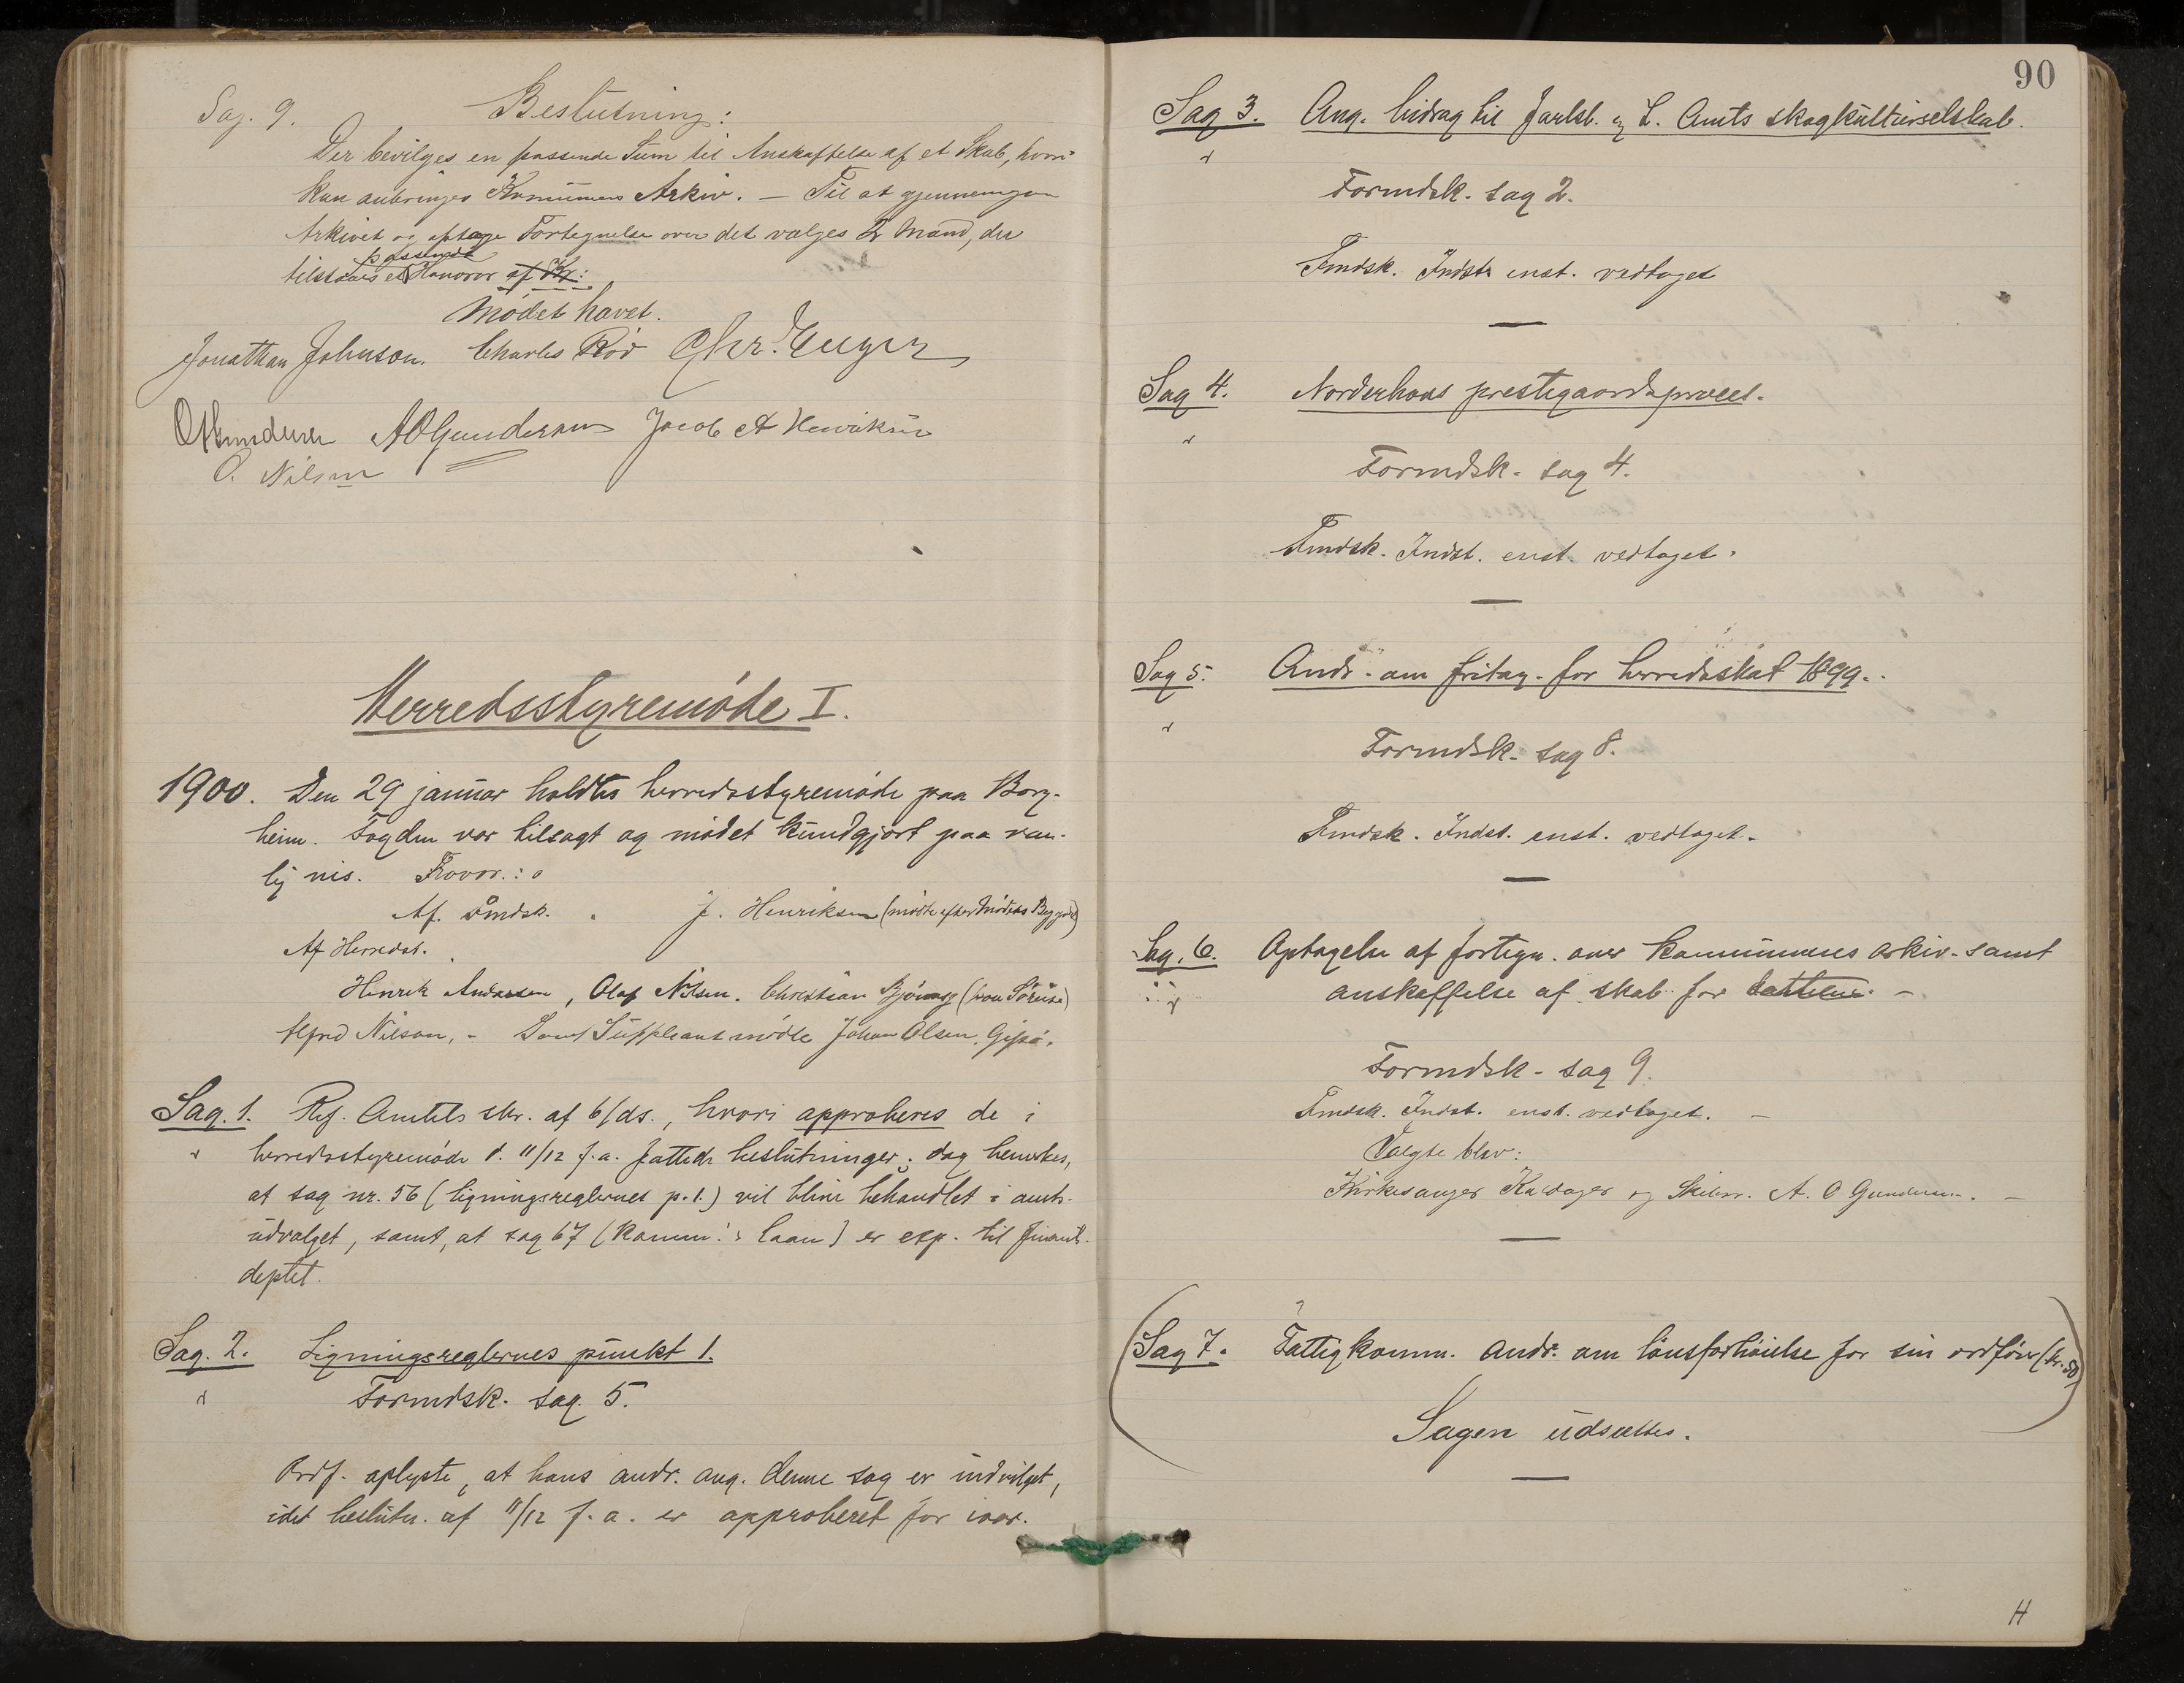 Sag. 9. Beslutning:
Der bevilges en passende Sum til Anskaffelse af et Skab, hvori
kan anbringes Kommunens Arkiv. — Til at gjennemgaa
Arkivet og optage Fortegnelse over det vælges 2 Mænd, der
passende
tilstaaes et Honorar af Kr:
Mødet hævet.
Jonathan Johnson. Charles Röd Chr.
AOGundersen Jacob A Henriksen
O. Nilsen
Herredsstyremøde I.
1900. Den 29 januar holdtes herredsstyremøde paa Borg-
heim. Fogden var tilsagt og mødet kundgjort paa van-
lig vis. Fravær.:
Af. Fmdsk. J. Henriksen (mødte efter Mødets Begynd.)
Af Herredst.
Henrik Andersen, Olaf Nilsen. Christian
Alfred Nilson, - Som Suppleant mødte Johan Olsen,
Sag. 1. Ref. Amtets skr. af 6/ds., hvori approberes de i
herredsstyremøde d. 11/12 f.a. fattede beslutninger; dog bemerkes,
at sag nr. 56 (ligningsreglernes p. 1.) vil blive behandlet i amts-
udvalget, samt, at sag 67 (komm:s laan) er exp. til finants-
deptet.
Sag. 2. Ligningsreglernes punkt 1.
Formdsk. sag. 5.
Ordf. oplyste, at hans andr. ang. denne sag er indvilget,
idet beslutn. af 11/12 f.a. er approberet for iaar.
90
Sag 3. Ang. bidrag til Jarlsb. og L. Amts skogkulturselskab.
Formdsk. sag 2.
Fmdsk. Indst. enst. vedtaget
Sag 4. Norderhovs prestegaardsproces.
Formdsk. sag 4.
Fmdsk. Indst. enst. vedtaget.
Sag 5. Andr. om fritag. for herredsskat 1899.
Formdsk. sag 8.
Fmdsk. Indst. enst. vedtaget.
Sag. 6. Optagelse af fortegn. over kommunens arkiv samt
anskaffelse af skab for
Formdsk. sag 9.
Fmdsk. Indst. enst. vedtaget. —
Valgte blev:
Kirkesanger og Skibsr. A. O Gundersen. —
(Sag 7. Fattigkomm. andr. om lønsforhøielse for sin ordfører (kr. 50)
Sagen udsættes.
H